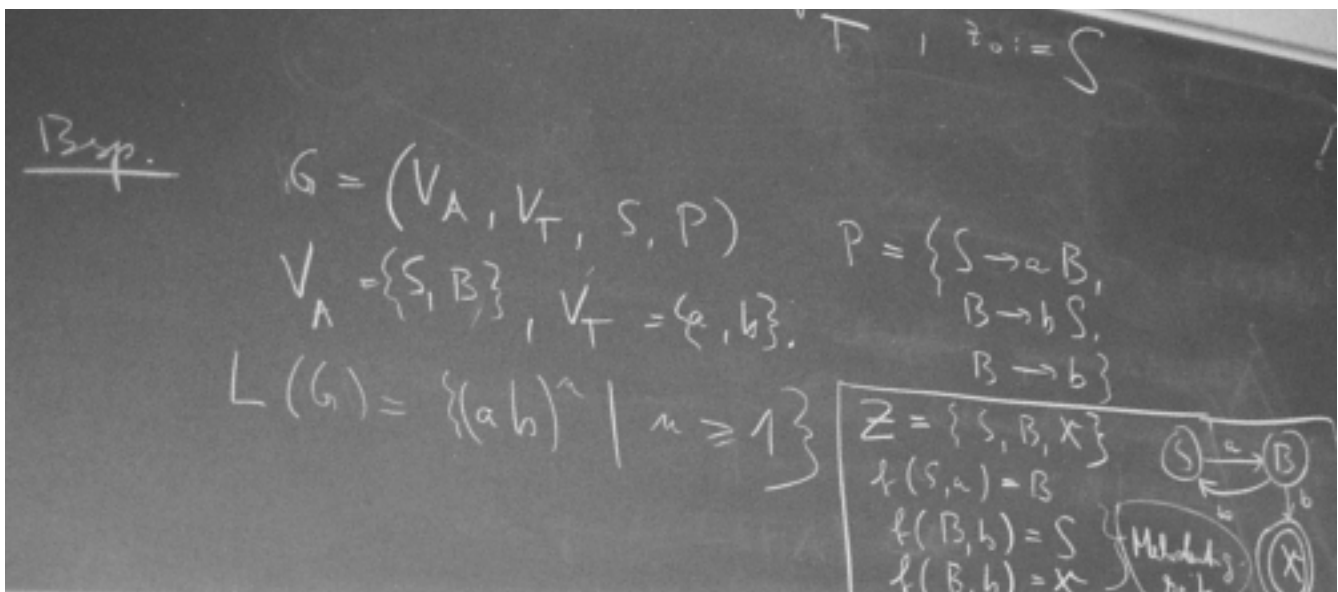 T , z₀ := S
!
Bsp.
G = (V_A, V_T, S, P)
V_A = {S, B}, V_T = {a, b}.
L(G) = {(ab)ⁿ | n ≥ 1}
P = {S → aB,
B → bS,
B → b}
Z = {S, B, X}
f(S,a) = B
f(B,b) = S
f(B,b) = X
S a B
b b
X